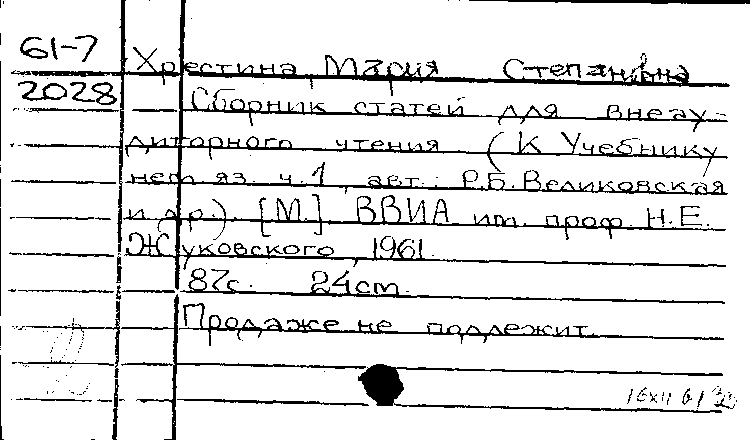 61-7
Хрестина, Мария Степановна
2028
Сборник статей для внеау-
диторного чтения (К Учебнику
нем. яз. ч.1, авт.: Р.Б. Великовская
и др.). [М.]. ВВИА им. проф. Н.Е.
Жуковского, 1961.
87с. 24cm.
Продаже не подлежит.